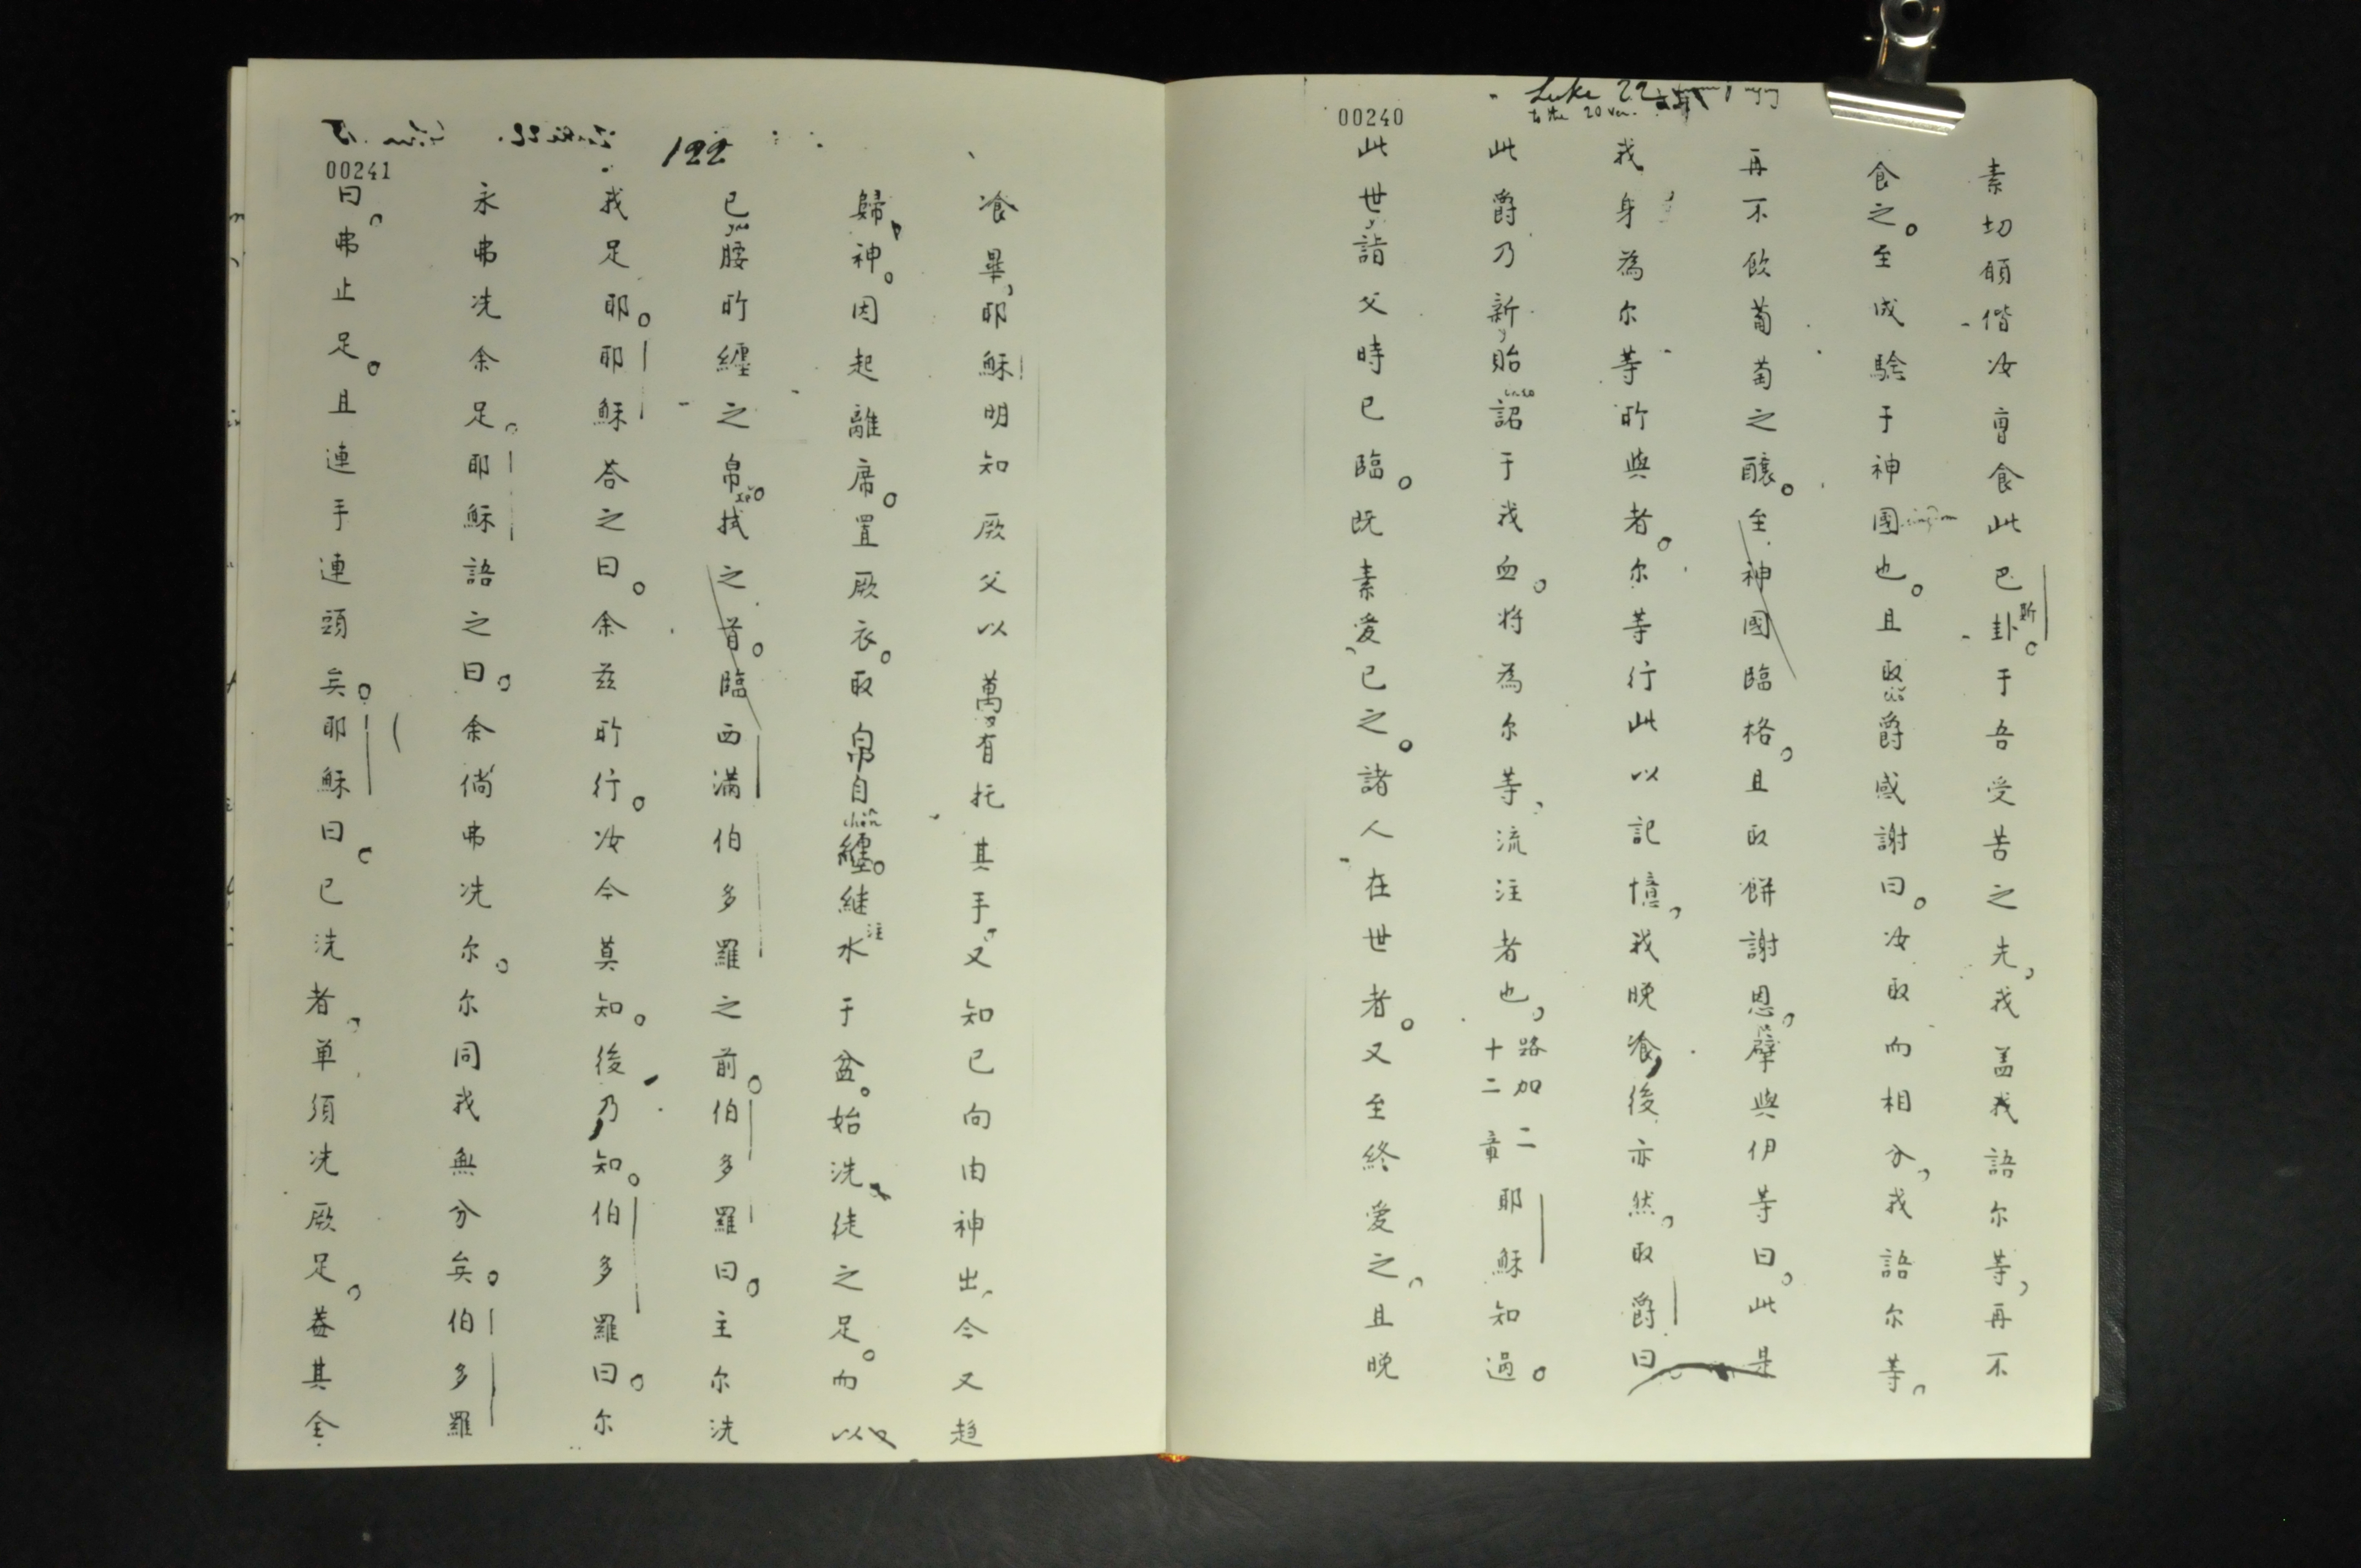 00240
Luke 22
to the 20 ver.
素切願偕汝曹食此巴斯卦。于吾受苦之先，我盖我語尔等，再不
食之。至成騐于神國也。且取爵感謝曰。汝取而相分，我語尔等。
再不飲葡萄之釀。至神國臨格。且取餅謝恩，擘與伊等曰。此是
我身為尔等所與者。尔等行此以記憶，我晚飡，後亦然，取爵曰
此爵乃新，貽詔于我血。将為尔等，流注者也，路加二十二章耶穌知過。
此世，詣父時已臨。既素愛已之。諸人在世者。又至終愛之。且晚
00241
122
飡畢，耶穌明知厥父以萬有托其手。又知已向由神出，今又趋
歸神。因起離席。置厥衣。取帛自纏。継注水于盆。始洗徒之足。而以
已腰所纏之帛拭之首。臨西满伯多羅之前。伯多羅曰。主尔洗
我足耶。耶穌荅之曰。余茲所行。汝今莫知。後乃知。伯多羅曰。尔
永弗洗余足。耶穌語之曰。余倘弗洗尔。尔同我無分矣。伯多羅
曰。弗止足。且連手連頭矣。耶穌曰。已洗者，单須洗厥足。葢其全